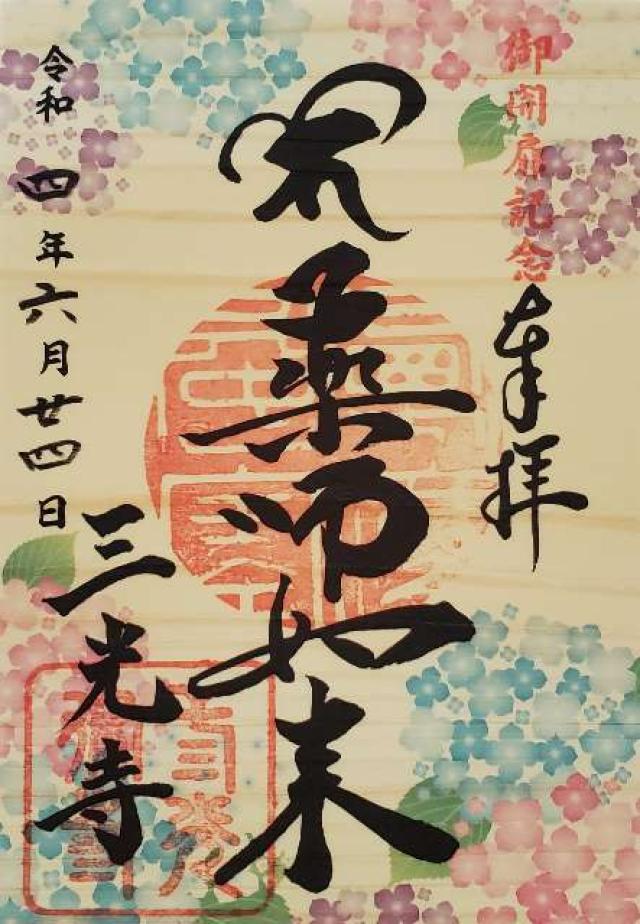 御開扉記念
奉拝
薬師如来
三光寺
令和四年六月廿四日